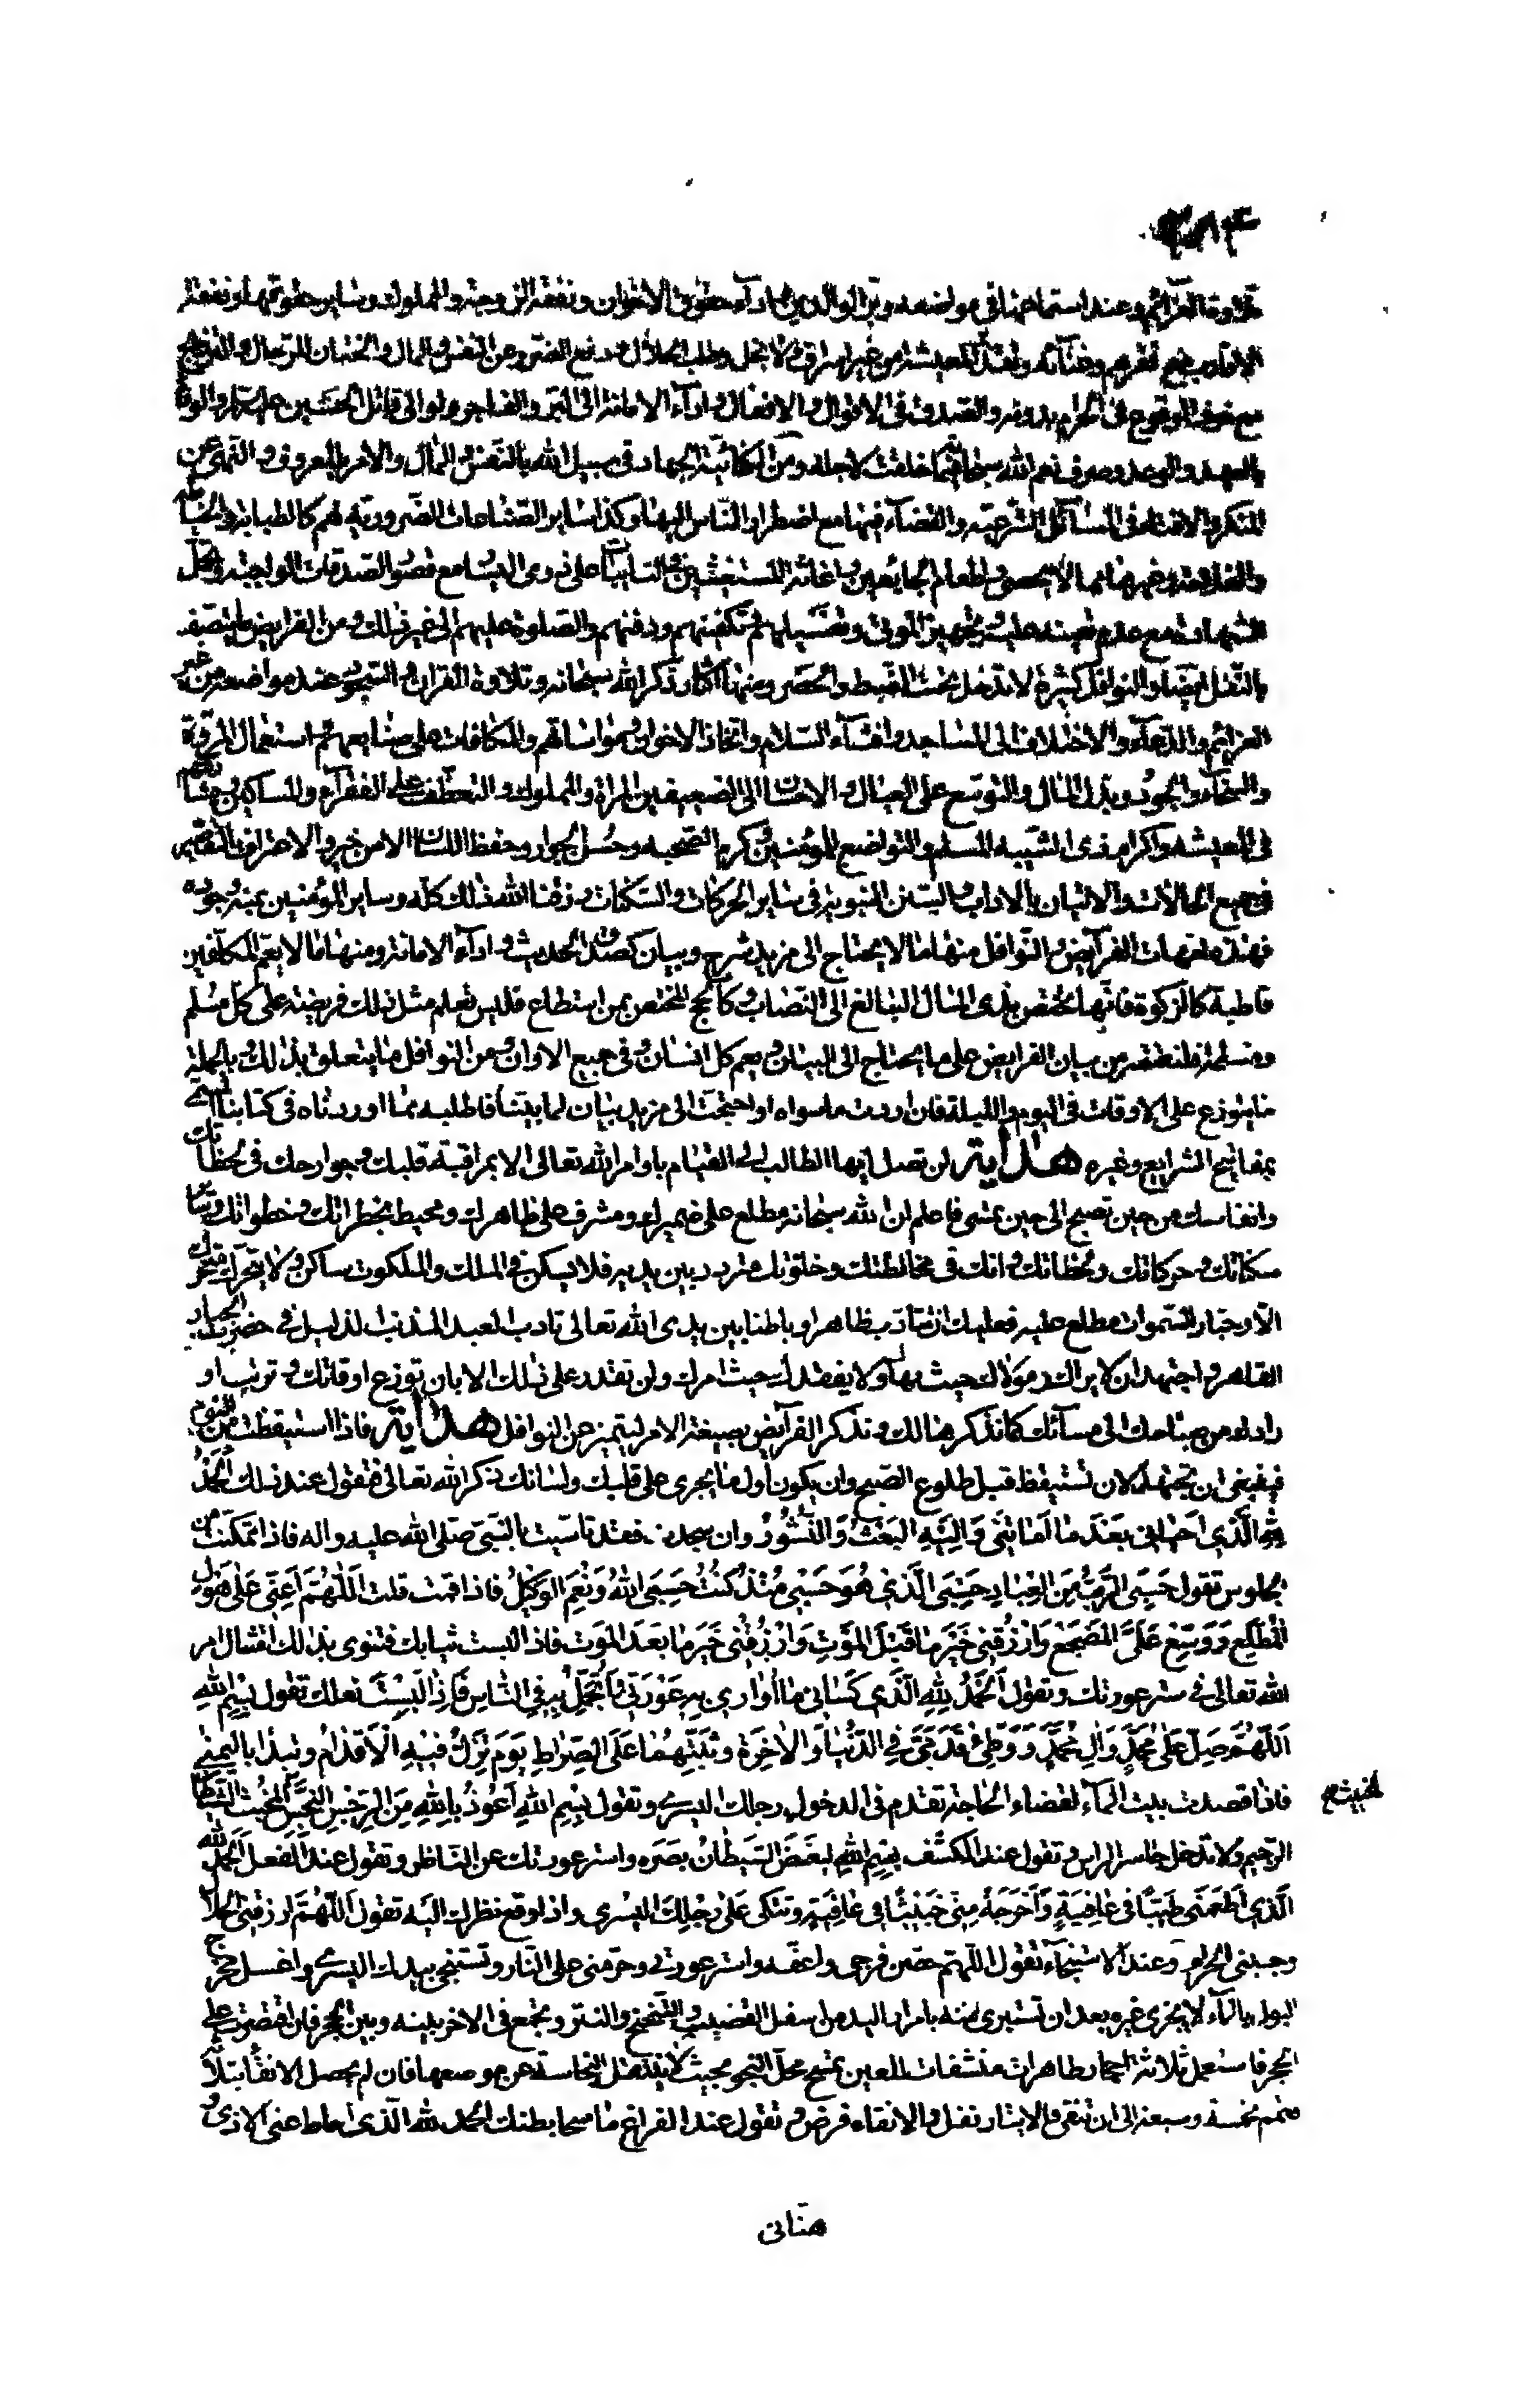 تلاوة العزائم وعند استماعها في مواضعه وبرّ الوالدين وادآء حقوق الاخوان ونفقة الزوجة والمملوك وساير حقوقهما ونفقة
الاقارب مع فقرهم وغنائه وتقدير المعيشة من غير اسراف ولا بخل وطلب الحلال ودفع الضرر عن النفس والمال والختان للرجال والتزويج
مع خوف الوقوع في الحرام بدونه والصدق في الاقوال والافعال وادآء الامانة الى البرّ والفاجر ولو الى قاتل الحسين عليه السلام والوفا
بالعهد والوعد وصرف نعم الله سبحانه فيما خلقت لاجله ومن الكفائية الجهاد في سبيل الله بالنفس والمال والامر بالمعروف والنهي عن
المنكر والافتاء في المسائل الشرعيّة والقضآء فيها مع اضطرار الناس اليها وكذا ساير الصناعات الضرورية لهم كالطبابة والخياطة
والفلاحة وغيرها مما لا يحصى واطعام الجايعين واغاثة المستغيثين في النايبات على ذوي اليسار مع قصور الصدقات الواجبة وتحمل
الشهادات مع عدم تعينه عليه وتجهيز الموتى وتغسيلهم وتكفينهم ودفنهم والصلوة عليهم الى غير ذلك ومن الفرايض ما يتصف
بالنفل ايضا والنوافل كثيرة لا تدخل تحت الضبط والحصر ومنها اكثار ذكر الله سبحانه وتلاوة القران والسجود عند مواضعه من غير
العزائم والدعآء والاختلاف الى المساجد وافشآء السلام واتخاذ الاخوان ومواساتهم والمكافات على صنايعهم واستعمال المروّة
والسخآء والجود وبذل المال والتوسّع على العيال والاحسان الى الضعيفين المراة والمملوك والتعطف على الفقرآء والمساكين
في المعيشة واكرام ذي الشيبة المسلم والتواضع للمؤمنين وكرم الصحبه وحُسن الجوار وحفظ اللسان الا من خير والاعتراف بالتقصير
في جميع الحالات والاتيان بالاداب والسنن النبوية في ساير الحركات والسكنات رزقنا الله ذلك كله وساير المؤمنين بمنه وجوده
فهذه مهمات الفرآيض والنوافل منها ما لا يحتاج الى مزيد شرح وبيان كصدق الحديث وادآء الامانة ومنها ما لا يعم المكلّفين
قاطبة كالزكوة فانّها تختص بذي المال البالغ الى النصاب وكالحج المختص بمن استطاع فليس تعلم مثل ذلك فريضة على كل مسلم
ومسلمة فلنقتصر من بيان الفرايض على ما يحتاج الى البيان ويعم كل انسان في جميع الاوان ومن النوافل ما يتعلق بذلك وبالجملة
ما يتوزع على الاوقات في اليوم والليلة فان اردت ما سواه او احتجت الى مزيد بيان لما بيّنا فاطلبه مما اوردناه في كتابنا المسمى
بمفاتيح الشرايع وغيره هداية لن تصل ايها الطالب الى القيام باوامر الله تعالى الا بمراقبة قلبك وجوارحك في لحظاتك
وانفاسك من حين تصبح الى حين تمسي فاعلم ان الله سبحانه مطلع على ضميرك ومشرف على ظاهرك ومحيط بخطراتك وخطواتك وساير
سكناتك وحركاتك ولحظاتك وانك في مخالطتك وخلوتك متردد بين يديه فلا يسكن في الملك والملكوت ساكن ولا يتحرك متحرك
الا وجبار السموات مطلع عليه فعليك ان تتادب ظاهرا وباطنا بين يدي الله تعالى تادب العبد المذنب الذليل في حضرة الجبار
القاهر واجتهد ان لا يراك مولاك حيث نهاك ولا يفقدك حيث امرك ولن تقدر على ذلك الا بان توزع اوقاتك وترتب او
رادك من صباحك الى مسآئك كما نذكر هنالك ونذكر الفرآيض بصيغة الامر ليتميز عن النوافل هداية فاذا استيقظت من النوم
فينبغي ان تجتهد لان تستيقظ قبل طلوع الصبح وان يكون اول ما يجري على قلبك ولسانك ذكر الله تعالى فتقول عند ذلك اَلْحَمْدُ
لِلّٰهِ الَّذي اَحْيٰاني بَعْدَ مٰا اَمٰاتَني وَاِلَيْهِ البَعْثُ وَالنُّشُورُ وان سجدت فقد تاسّيت بالنبيّ صلى الله عليه واله فاذا تمكنت من
الجلوس تقول حَسْبِيَ الرَّبُّ مِنَ العِبٰادِ حَسْبِيَ الَّذي هُوَ حَسْبي مُنْذُ كُنْتُ حَسْبِيَ اللهُ وَنِعْمَ الوَكيلُ فاذا قمت قلت اَللّٰهُمَّ اَعِنّي عَلىٰ هَوْلِ
المُطَّلَعِ وَوَسِّعْ عَلَيَّ المَضْجَعَ وَارْزُقْني خَيْرَ مٰا قَبْلَ المَوْتِ وَارْزُقْني خَيْرَ مٰا بَعْدَ المَوْتِ فاذا لبست ثيابك فتنوي بذلك امتثال امر
الله تعالى في ستر عورتك وتقول اَلْحَمْدُ لِلّٰهِ الَّذي كَسٰاني مٰا اُوٰاري بِهِ عَوْرَتي وَاَتَجَمَّلُ بِهِ فِي النّاسِ فَاِذٰا لَبِسْتَ نعلك تقول بِسْمِ اللهِ
اَللّٰهُمَّ صَلِّ عَلىٰ مُحَمَّدٍ وَآلِ مُحَمَّدٍ وَوَطِّئْ قَدَمَيَّ فِي الدُّنْيٰا وَالاٰخِرَةِ وَثَبِّتْهُمٰا عَلَى الصِّرٰاطِ يَوْمَ تَزِلُّ فيهِ الاَقْدٰامُ وتبدا باليمنى
فاذا قصدت بيت المآء لقضاء الحاجة تقدم في الدخول رجلك اليسرى وتقول بِسْمِ اللهِ اَعُوذُ بِاللهِ مِنَ الرِّجْسِ النَّجِسِ الخَبيثِ الشيطان
الرجيم ولا تدخل حاسر الراس وتقول عند الكشف بِسْمِ اللهِ لِيَغُضَّ الشَّيطانُ بَصَرَه واستر عورتك عن النّاظر وتقول عند الفعل اَلْحَمْدُ لِلّٰه
الَّذي اَطْعَمَني طَيِّبًا في عٰافِيَةٍ وَاَخْرَجَهُ مِنّي خَبيثًا في عٰافِيَةٍ وتتكي عَلىٰ رِجْلِكَ اليُسرى واذا وقع نظرك اليه تقول اَللّٰهُمَّ ارزقني الحلال
وجنبني الحرام وعند الاستنجاء تقول اللّهم حصّن فرجي واعفّه واستر عورتي وحرّمني على النّار وتستنجي بيدك اليسرى واغسل مخرج
البول بالمآء لا يجزي غيره بعد ان تستبرئ منه بامرار اليد من اسفل القضيب والتنحنح والنتر وتجمع في الاخر بينه وبين الحجر فان اقتصرت على
الحجر فاستعمل ثلاثة احجار طاهرات منشفات للعين تمسح محلّ النجو بحيث لا ينتقل النجاسة عن موضعها فان لم يحصل الانقاء بثلاثة
فتمم خمسة وسبعة الى ان تنقي والايتار نفل والانقاء فرض وتقول عند الفراغ ماسحا بطنك الحمد لله الّذي اماط عنّي الاذى و
هنّاني